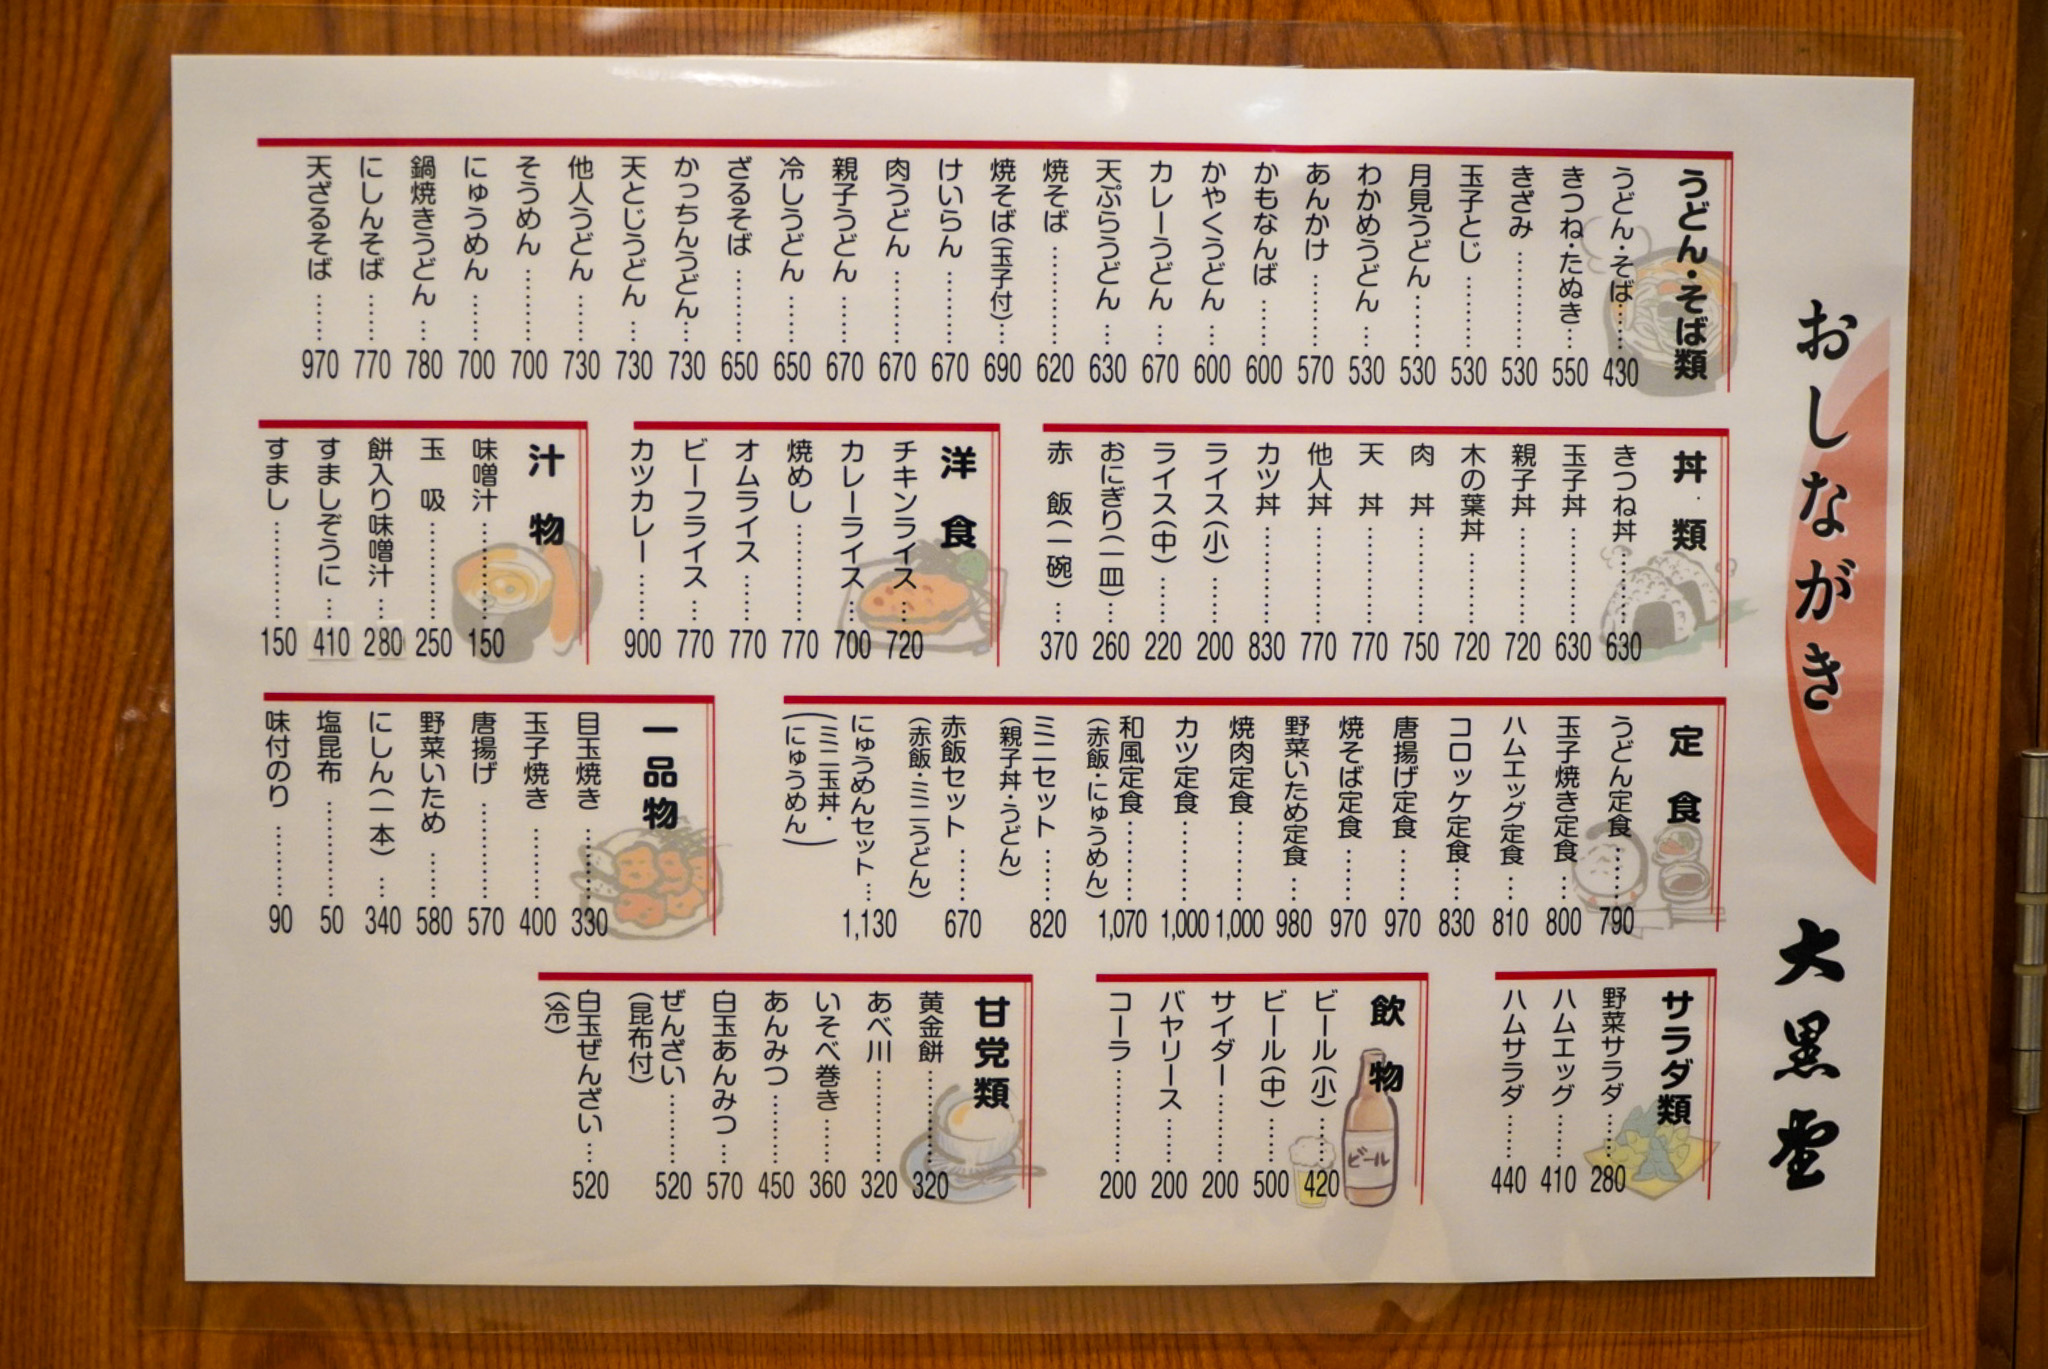 おしながき
大黒堂
うどん・そば類
うどん・そば……430
きつね・たぬき…550
きざみ…………530
玉子とじ………530
月見うどん……530
わかめうどん…530
あんかけ………570
かもなんば……600
かやくうどん…600
カレーうどん…670
天ぷらうどん…630
焼そば…………620
焼そば(玉子付)…690
けいらん………670
肉うどん………670
親子うどん……670
冷しうどん……650
ざるそば………650
かっちんうどん…730
天とじうどん…730
他人うどん……730
そうめん………700
にゅうめん……700
鍋焼きうどん…780
にしんそば……770
天ざるそば……970
丼類
きつね丼………630
玉子丼…………630
親子丼…………720
木の葉丼………720
肉 丼…………750
天 丼…………770
他人丼…………770
カツ丼…………830
ライス(小)……200
ライス(中)……220
おにぎり(一皿)…260
赤 飯(一碗)…370
洋食
チキンライス…720
カレーライス…700
焼めし…………770
オムライス……770
ビーフライス…770
カツカレー……900
汁物
味噌汁…………150
玉 吸…………250
餅入り味噌汁…280
すましぞうに…410
すまし…………150
定食
うどん定食……790
玉子焼き定食…800
ハムエッグ定食…810
コロッケ定食…830
唐揚げ定食……970
焼そば定食……970
野菜いため定食…980
焼肉定食………1,000
カツ定食………1,000
和風定食………1,070
(赤飯・にゅうめん)
ミニセット……820
(親子丼・うどん)
赤飯セット……670
(赤飯・ミニうどん)
にゅうめんセット…1,130
(ミニ玉丼・
にゅうめん)
一品物
目玉焼き………330
玉子焼き………400
唐揚げ…………570
野菜いため……580
にしん(一本)…340
塩昆布…………50
味付のり………90
サラダ類
野菜サラダ……280
ハムエッグ……410
ハムサラダ……440
飲物
ビール(小)……420
ビール(中)……500
サイダー………200
バヤリース……200
コーラ…………200
ビール
甘党類
黄金餅…………320
あべ川…………320
いそべ巻き……360
あんみつ………450
白玉あんみつ…570
ぜんざい………520
(昆布付)
白玉ぜんざい…520
(冷)